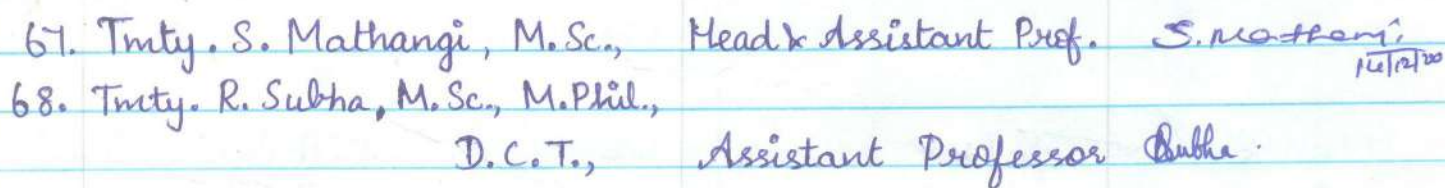 67. Tmty. S. Mathangi, M.Sc., Head & Assistant Prof. S. Mathangi
68. Tmty. R. Subha, M.Sc., M.Phil.,
D.C.T., Assistant Professor Subha.